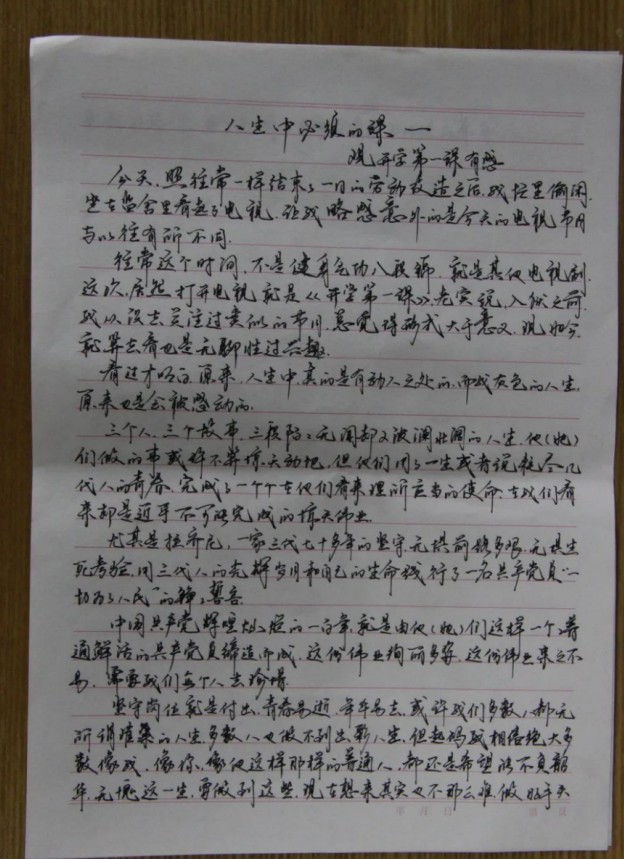 人生中必须的课——
观开学第一课有感
今天,照往常一样结束了一日的劳动改造之后,我忙里偷闲,
坐在监舍里看起了电视,让我略感意外的是今天的电视节目
与以往有所不同.
往常这个时间,不是健身气功八段锦,就是其他电视剧.
这次,居然打开电视就是《开学第一课》,老实说,入狱之前
我从没去关注过类似的节目,总觉得形式大于意义.现如今
就算去看也是无聊性过兴趣.
看过才明白,原来,人生中真的是有动人之处的,而我灰色的人生,
原来也是会被感动的.
三个人,三个故事,三段默默无闻却又波澜壮阔的人生.他(她)
们做的事或许不算惊天动地,但他们用了一生或者说耗尽几
代人的青春.完成了一个个在他们看来理所应当的使命,在我们看
来却是近乎不可能完成的惊天伟业.
尤其是拉齐尼,一家三代七十多年的坚守,无惧前路多艰,无惧生
死考验,用三代人的光辉岁月和自己的生命践行了一名共产党员“一
切为了人民”的铮铮誓言.
中国共产党辉煌灿烂的一百年,就是由他(她)们这样一个个普
通鲜活的共产党员缔造而成,这份伟业绚丽多姿,这份伟业来之不
易,需要我们每个人去珍惜.
坚守岗位就是付出,青春易逝,年华易去,或许我们多数人都无
所谓准条的人生,多数人也做不到出彩人生,但起码我相信绝大多
数像我,像你,像他这样那样的普通人,都还是希望能不负韶
华,无愧这一生,要做到这些,现在想来其实也不那么难,做好手头
年 月 日